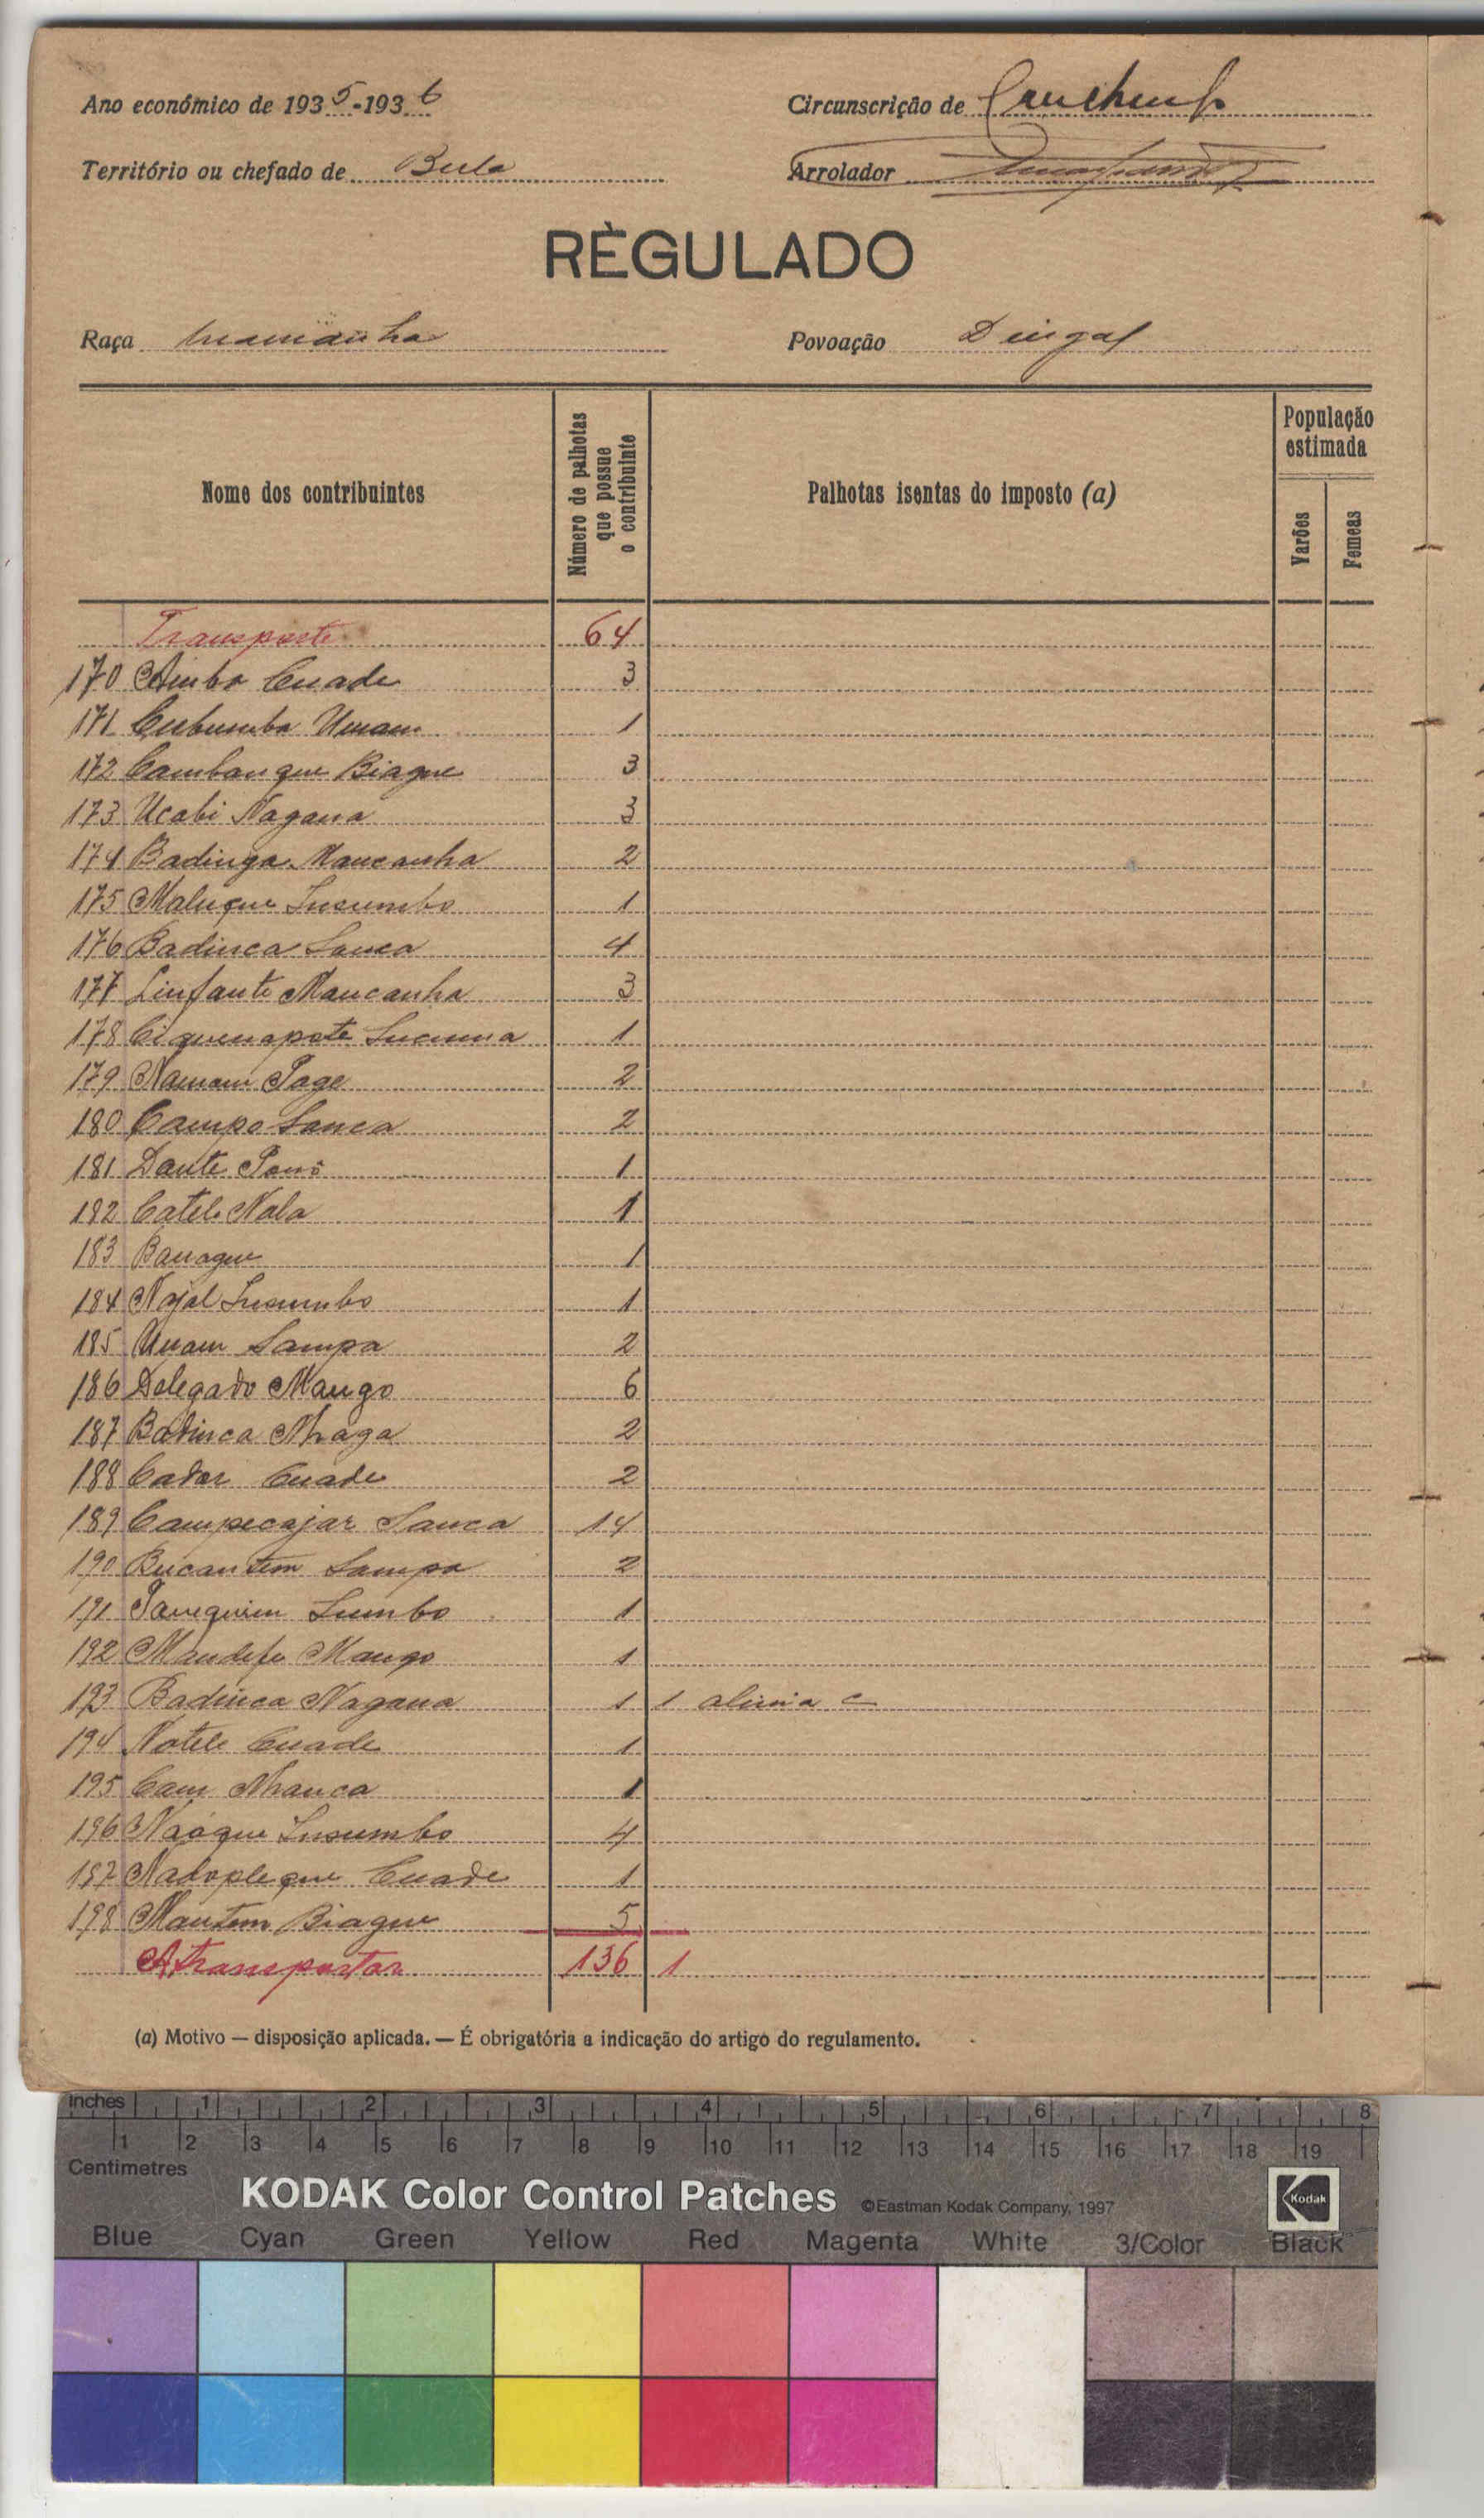 Ano económico de 1935-1936
Circunscrição de
Território ou chefado de Bula
Arrolador
RÈGULADO
Raça mancanha
Povoação Dingal
Nome dos contribuintes
Número de palhotas que possue o contribuinte
Palhotas isentas do imposto (a)
População estimada
Varões
Femeas
Transporte 64
170 Cuade 3
171 Unam 1
172 Cambanque Biague 3
173 Ucabi Nagana 3
174 Badinga Mancanha 2
175 Maluque Insumbo 1
176 Badinca Sanca 4
177 Linfante Mancanha 3
178 1
179 Namam 2
180 Campo Sanca 2
181 Dante 1
182 Catele Nala 1
183 Banague 1
184 Najal Insumbo 1
185 Unam Sampa 2
186 Delegado Mango 6
187 Badinca Nhaga 2
188 Cador Cuade 2
189 Campecajar Sanca 14
190 Bucantem Sampa 2
191 Tanequim Lumbo 1
192 Mandefe Mango 1
193 Badinca Nagana 1 1 alinia c
194 Natele Cuade 1
195 Cam Nhanca 1
196 Naóque Insumbo 4
197 Nadopleque Cuade 1
198 Mantem Biague 5
A transportar 136 1
(a) Motivo — disposição aplicada. — É obrigatória a indicação do artigo do regulamento.
Inches 1 2 3 4 5 6 7 8
1 2 3 4 5 6 7 8 9 10 11 12 13 14 15 16 17 18 19
Centimetres
KODAK Color Control Patches ©Eastman Kodak Company, 1997 Kodak
Blue Cyan Green Yellow Red Magenta White 3/Color Black